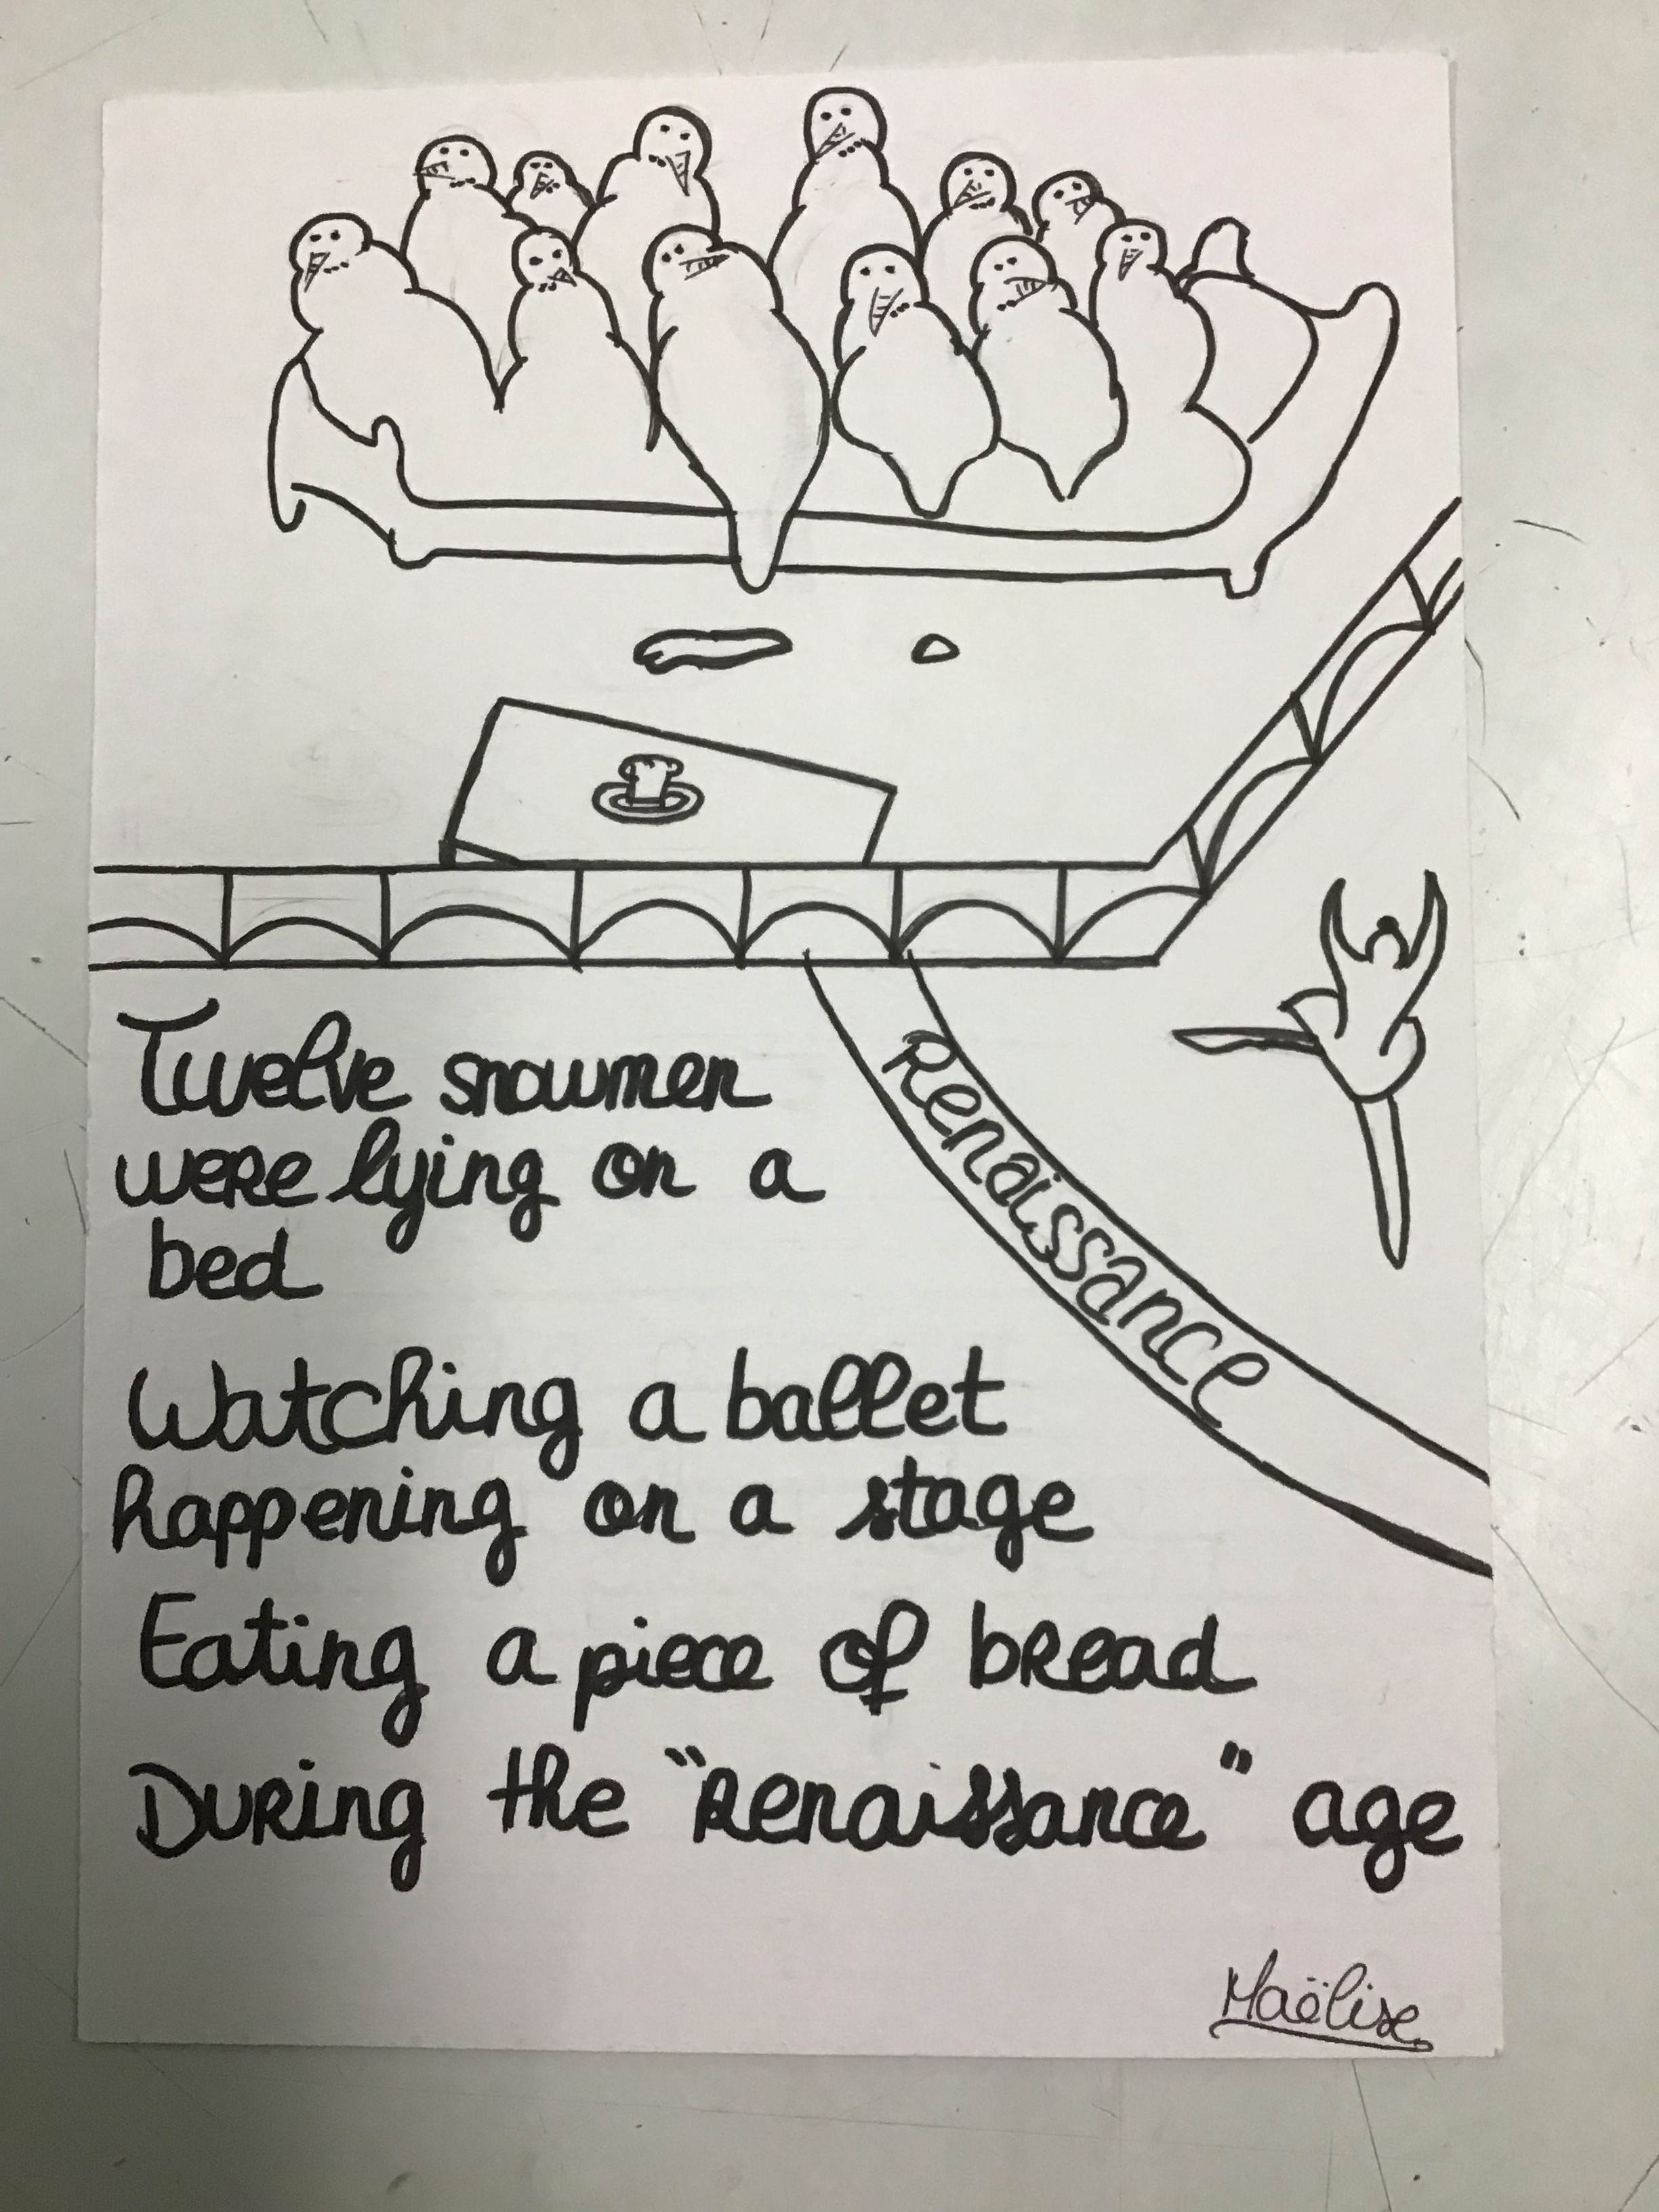 Renaissance
Twelve snowmen
were lying on a
bed
Watching a ballet
happening on a stage
Eating a piece of bread
During the "Renaissance" age
Maëlise